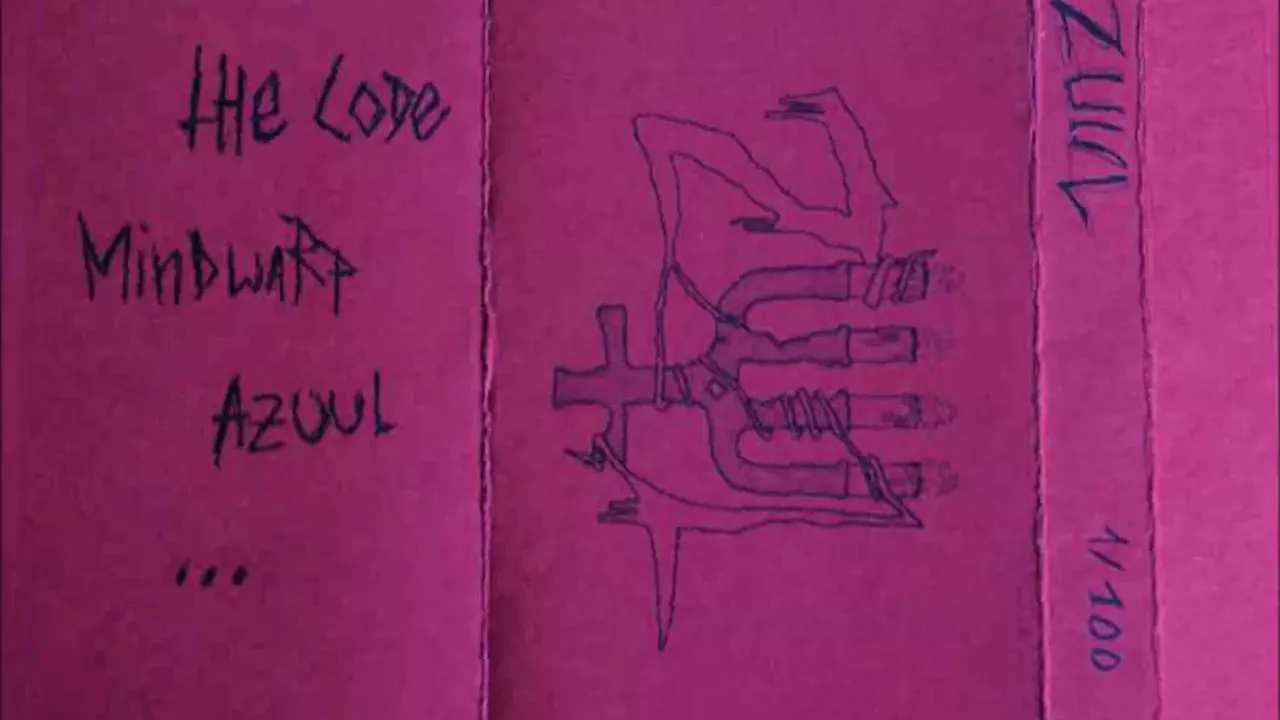 tHe CoDe
MinDwaRp
AZUUL
...
ZUUL
1/100